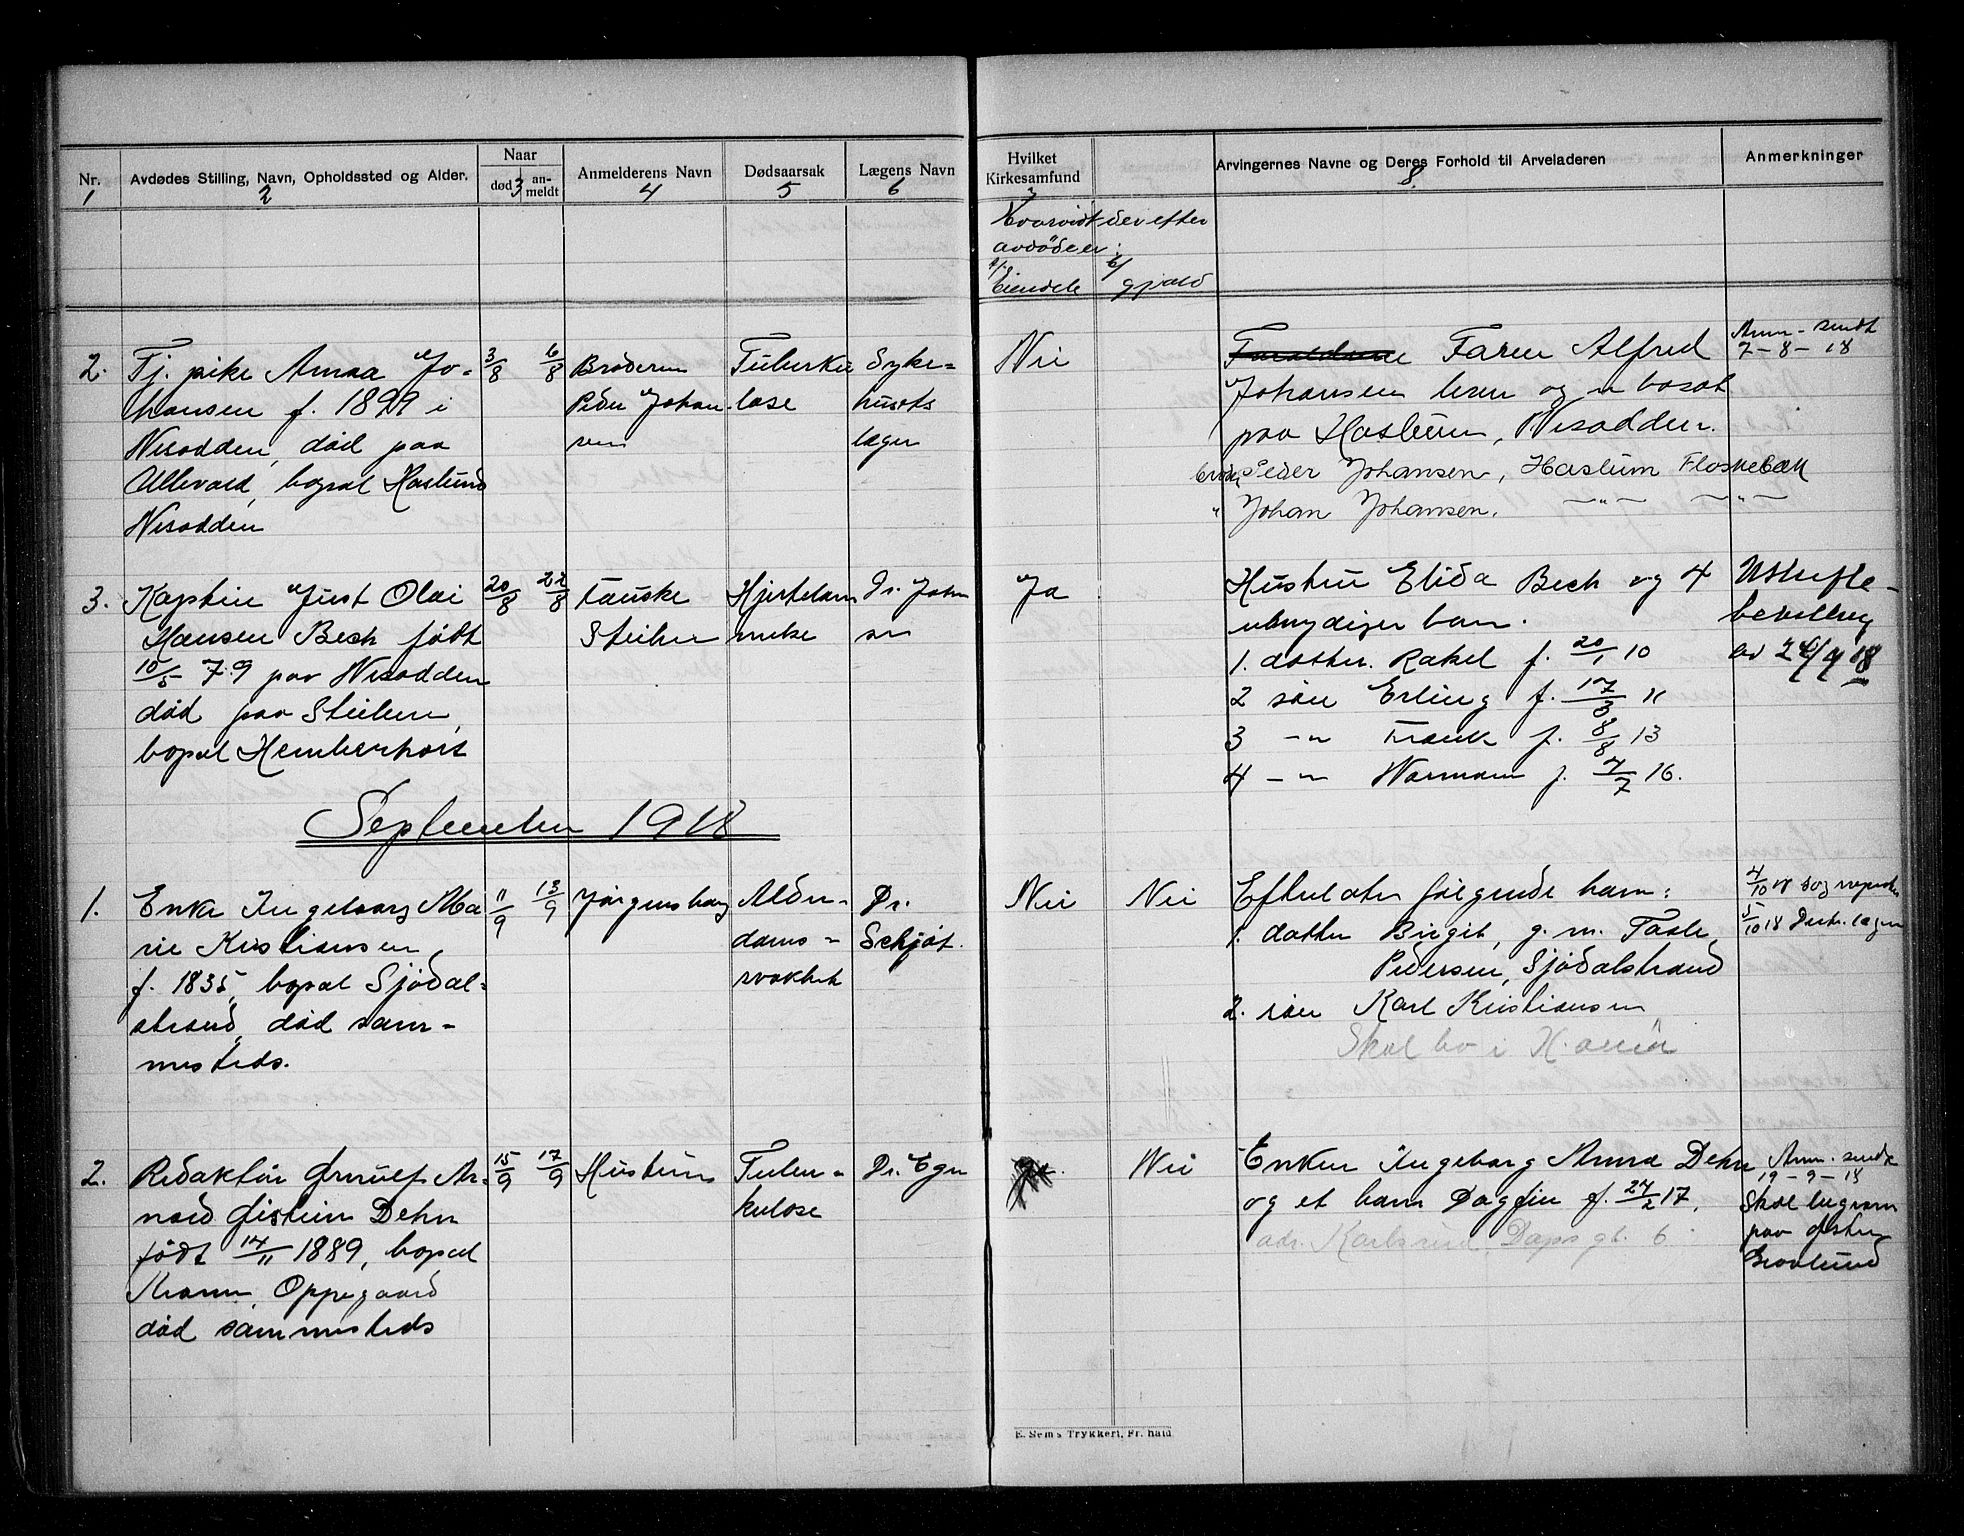 Nr. Avdødes Stilling, Navn, Opholdssted og Alder. Naar død anmeldt Anmelderens Navn Dødsaarsak Lægens Navn Hvilket Kirkesamfund Arvingernes Navne og Deres Forhold til Arveladeren Anmerkninger
1 2 3 4 5 6 7 8.
Hvorvidt der efter
avdøde er:
a/ Eiendele b/ gjæld
2. Tj. pike Anna Jo-
hansen f. 1899 i
Nesodden, død paa
Ullevaal, bopæl Haslund
Nesodden
3/8 6/8
Broderen
Peder Johan-
sen
Tuberku
lose
Syke-
husets
læger
Nei
Faren Alfred
Johansen leven og er bosat
paa Haslum, Nesodden.
Peder Johansen, Haslum Flaskebæk
" Johan Johansen. —"— —"—
Anm. sendt
7-8-18
3. Kaptein Just Olai
Hansen Bech født
10/5 79 paa Nesodden
død paa Steilene,
bopæl Hemberhøit
20/8 22/8
Fauske
Steilene
Hjertelam
melse
Dr. John
sen
Ja
Hustru Elida Bech og 4
umyndiger barn.
1. datter. Rakel f. 20/1 10
2 søn Erling f. 17/3 11
3 -"- Frank f. 8/8 13
4 -"- Normann f. 4/7 16.
Uskifte-
bevilling
av 26/9 18
September 1918
1. Enke Ingeborg Ma
rie Kristiansen
f. 1835, bopæl Sjødal-
strand, død sam-
mesteds.
11/9 13/9
Jørgensborg
Alder-
doms-
svakhet
Dr.
Schjøt.
Nei Nei
Efterlater følgende barn:
1. datter Birgit, g. m. Tarle
Pedersen, Sjødalstrand
2. søn Karl Kristiansen
Skal bo i
4/10
5/10 18
2. Redaktør Ørnulf Ar-
nord Øistein Dehn
født 14/11 1889, bopæl
Oppegaard
død sammesteds
15/9 17/9
Hustruen
Tuber-
kulose
Dr. Ege
Nei
Enken Ingeborg Anna Dehn
og et barn Dagfin f. 27/2 17,
adr. Karlsrud, Daps gt. 6
Anm. sendt
19-9-18
Skal begraves
paa Østre
Gravlund
E. Sems Trykkeri, Fr.hald.